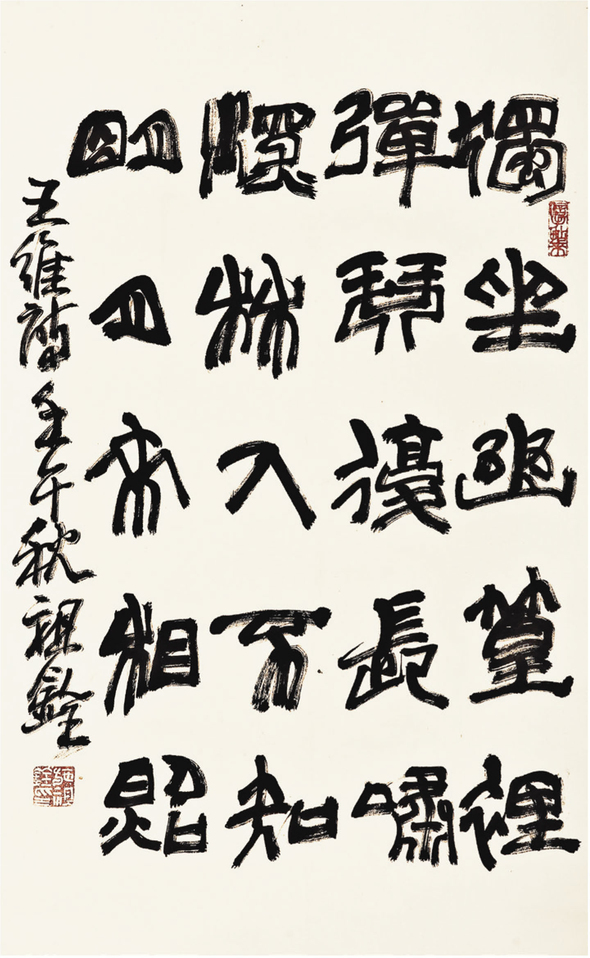 獨坐幽篁裡
彈琴復長嘯
深林人不知
明月來相照
王維詩 壬午秋 祖銓